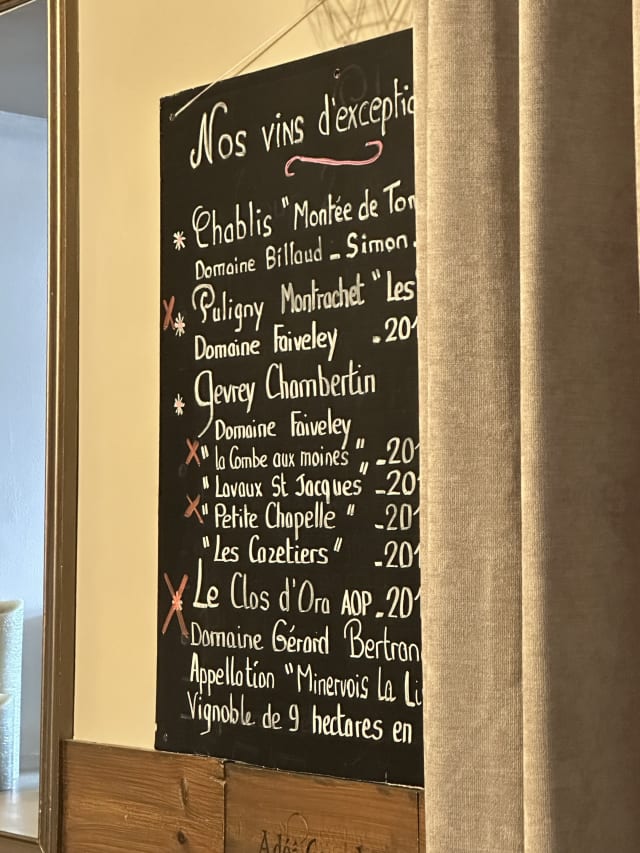 Nos vins d'exceptio
* Chablis "Montée de Ton
Domaine Billaud - Simon.
X * Puligny Montrachet "Les
Domaine Faiveley - 201
* Gevrey Chambertin
Domaine Faiveley
X "la Combe aux moines" - 201
"Lavaux St Jacques" - 201
X "Petite Chapelle" - 201
"Les Cazetiers" - 201
X * Le Clos d'Ora AOP - 201
Domaine Gérard Bertran
Appellation "Minervois La Li
Vignoble de 9 hectares en